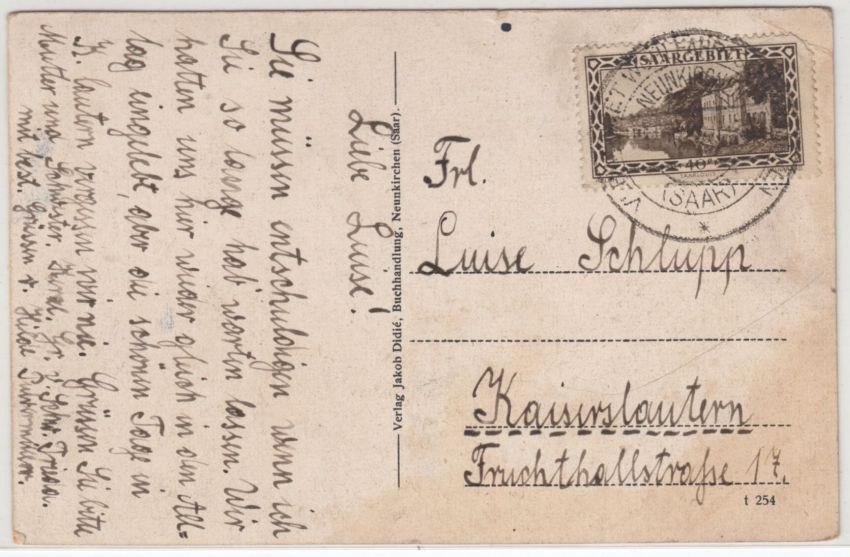 Liebe Luise!
Sie müssen entschuldigen wenn ich
Sie so lange hab warten lassen. Wir
hatten uns hier wieder gleich in den All=
tag eingelebt, aber die schönen Tage in
K. lautern vergessen wir nie. Grüssen Sie bitte
Mutter und Schwester, Herzl. Gr. v. Schw. Frieda.
mit best. Grüssen v. Hilde
Verlag Jakob Didié, Buchhandlung, Neunkirchen (Saar).
SAARGEBIET
40
SAARLOUIS
NEUNKIRCHEN
(SAAR)
Frl.
Luise Schlupp
Kaiserslautern
Fruchthallstraße 17.
t 254